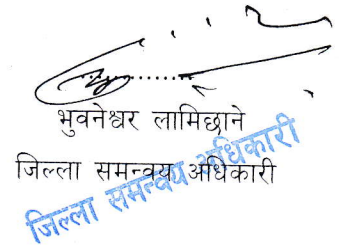 भुवनेश्वर लामिछाने
जिल्ला समन्वय अधिकारी
जिल्ला समन्वय अधिकारी